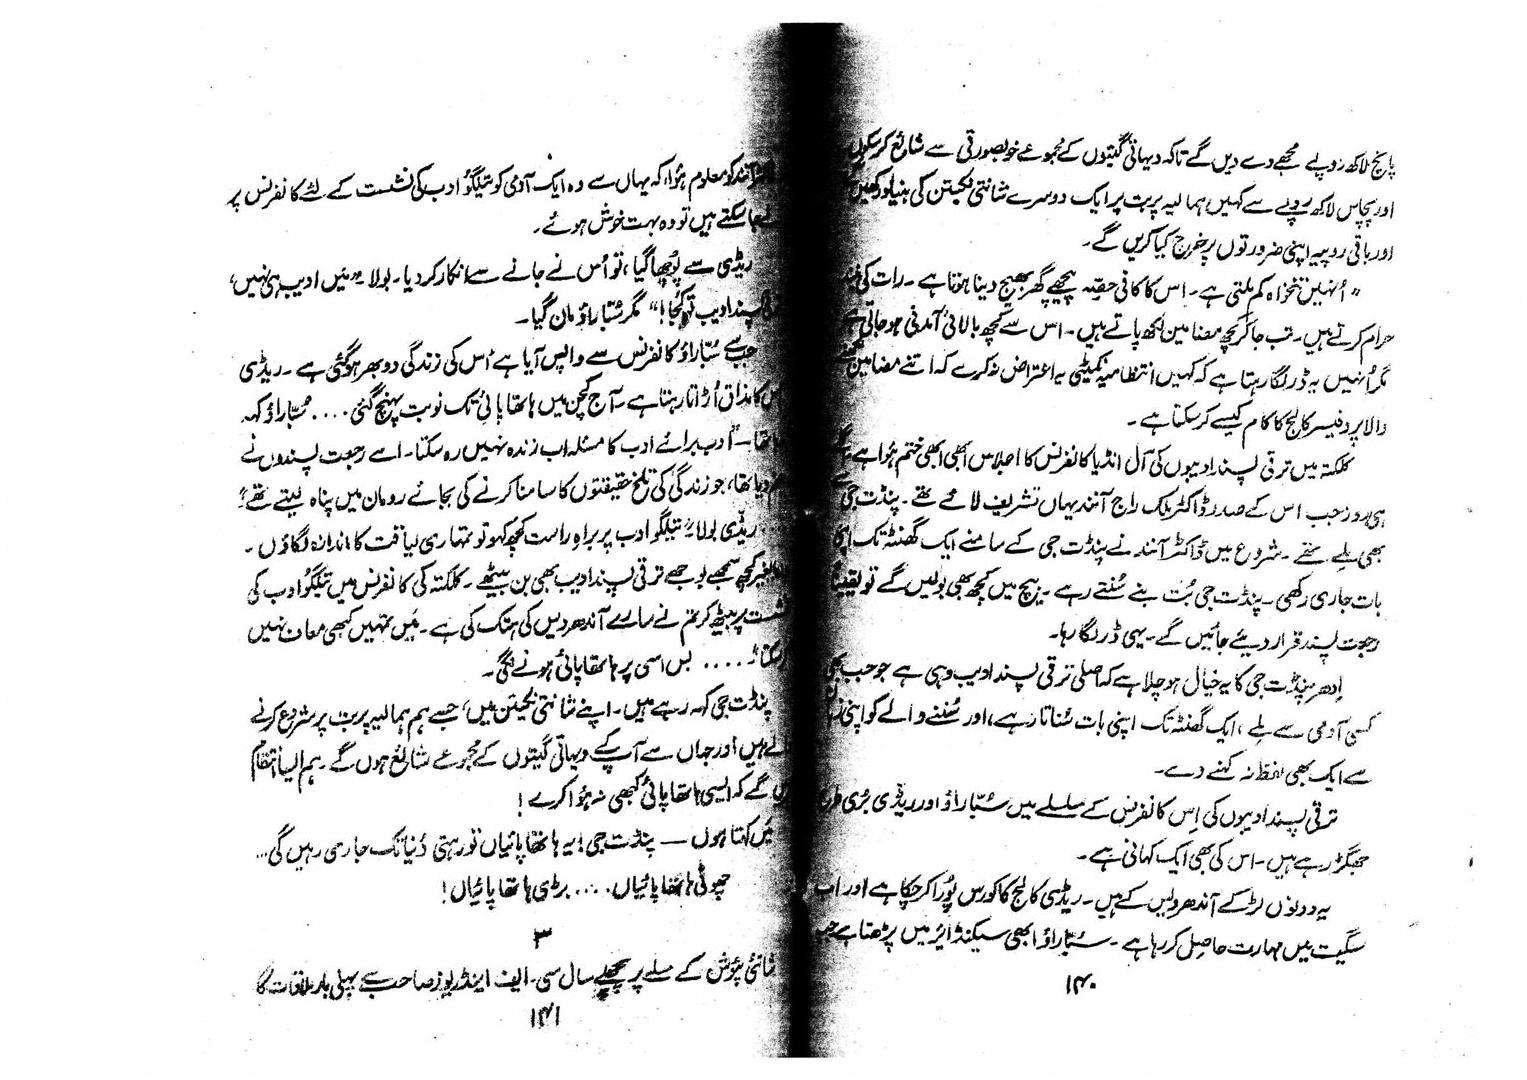 پانچ لاکھ روپے مجھے دے دیں گے تاکہ دیہاتی گیتوں کے مجموعے خوبصورتی سے شائع کرسکوں
اور پچاس لاکھ روپے سے کہیں ہمالیہ پربت پر ایک دوسرے شانتی نکیتن کی بنیاد رکھیں گے
اور باقی روپیہ اپنی ضرورتوں پر خرچ کیا کریں گے۔
"اُنہیں تنخواہ کم ملتی ہے۔ اِس کا کافی حصّہ پیچھے گھر بھیج دینا ہوتا ہے۔ رات کی نیند
حرام کرتے ہیں۔ تب جا کر کچھ مضامین لکھ پاتے ہیں۔ اس سے کچھ بالائی آمدنی ہو جاتی ہے
مگر اُنہیں یہ ڈر لگا رہتا ہے کہ کہیں انتظامیہ کمیٹی یہ اعتراض نہ کرے کہ اتنے مضامین لکھنے
والا پروفیسر کالج کا کام کیسے کرسکتا ہے۔
کلکتہ میں ترقی پسند ادیبوں کی آل انڈیا کانفرنس کا اجلاس ابھی ابھی ختم ہوا ہے
ہی روز جب اس کے صدر ڈاکٹر ملک راج آنند یہاں تشریف لائے تھے۔ پنڈت جی
بھی ملے تھے۔ شروع میں ڈاکٹر آنند نے پنڈت جی کے سامنے ایک گھنٹہ تک اپنی
بات جاری رکھی۔ پنڈت جی بُت بنے سُنتے رہے۔ بیچ میں کچھ بھی بولیں گے تو یقیناً
رجعت پسند قرار دیئے جائیں گے۔ یہی ڈر لگا رہا۔
اِدھر پنڈت جی کا یہ خیال ہو چلا ہے کہ اصلی ترقی پسند ادیب وہی ہے جو جب بھی
کسی آدمی سے ملے، ایک گھنٹہ تک اپنی بات سُناتا رہے، اور سُننے والے کو اپنی زبان
سے ایک بھی لفظ نہ کہنے دے۔
ترقی پسند ادیبوں کی اِس کانفرنس کے سلسلے میں سُبّا راؤ اور ریڈی بُری طرح
جھگڑ رہے ہیں۔ اس کی بھی ایک کہانی ہے۔
یہ دونوں لڑکے آندھر دیس کے ہیں۔ ریڈی کالج کا کورس پُورا کر چکا ہے اور اب
سنگیت میں مہارت حاصل کر رہا ہے۔ سُبّا راؤ ابھی سیکنڈ ائر میں پڑھتا ہے جب
۱۴۰
آنند کو معلوم ہؤا، کہ یہاں سے وہ ایک آدمی کو تیلگو ادب کی نشست کے لئے کانفرنس پر
لے جا سکتے ہیں تو وہ بہت خوش ہوئے۔
ریڈی سے پُوچھا گیا، تو اُس نے جانے سے انکار کر دیا۔ بولا "میں ادیب ہی نہیں،
پسند ادیب تو کُجا!" مگر سُبّا راؤ مان گیا۔
جب سے سُبّا راؤ کانفرنس سے واپس آیا ہے اُس کی زندگی دوبھر ہوگئی ہے۔ ریڈی
اس کا مذاق اُڑاتا رہتا ہے۔ آج کچن میں ہاتھا پائی تک نوبت پہنچ گئی.... سُبّا راؤ کہہ
رہا تھا۔ "ادب برائے ادب کا مسئلہ اب زندہ نہیں رہ سکتا۔ اسے رجعت پسندوں نے
جنم دیا تھا، جو زندگی کی تلخ حقیقتوں کا سامنا کرنے کی بجائے رومان میں پناہ لیتے تھے"
ریڈی بولا "تیلگو ادب پر براہِ راست کچھ کہو تو تمہاری لیاقت کا اندازہ لگاؤں۔
بغیر کچھ سمجھے بوجھے ترقی پسند ادیب بھی بن بیٹھے۔ کلکتہ کی کانفرنس میں تیلگو ادب کی
نشست پر بیٹھ کر تم نے سارے آندھر دیس کی ہتک کی ہے۔ مَیں تمہیں کبھی معاف نہیں
کر سکتا"..... بس اسی پر ہاتھا پائی ہونے لگی۔
پنڈت جی کہہ رہے ہیں۔ اپنے شانتی نکیتن میں، جسے ہم ہمالیہ پربت پر شروع کرنے
والے ہیں اور جہاں سے آپ کے دیہاتی گیتوں کے مجموعے شائع ہوں گے۔ ہم ایسا انتظام
کریں گے کہ ایسی ہاتھا پائی کبھی نہ ہوا کرے!
مَیں کہتا ہوں — پنڈت جی! یہ ہاتھا پائیاں تو رہتی دُنیا تک جاری رہیں گی...
چھوٹی ہاتھا پائیاں.... بڑی ہاتھا پائیاں!
۳
شانتی پؤش کے میلے پر پچھلے سال سی۔ ایف اینڈریوز صاحب سے پہلی بار ملاقات کا
۱۴۱